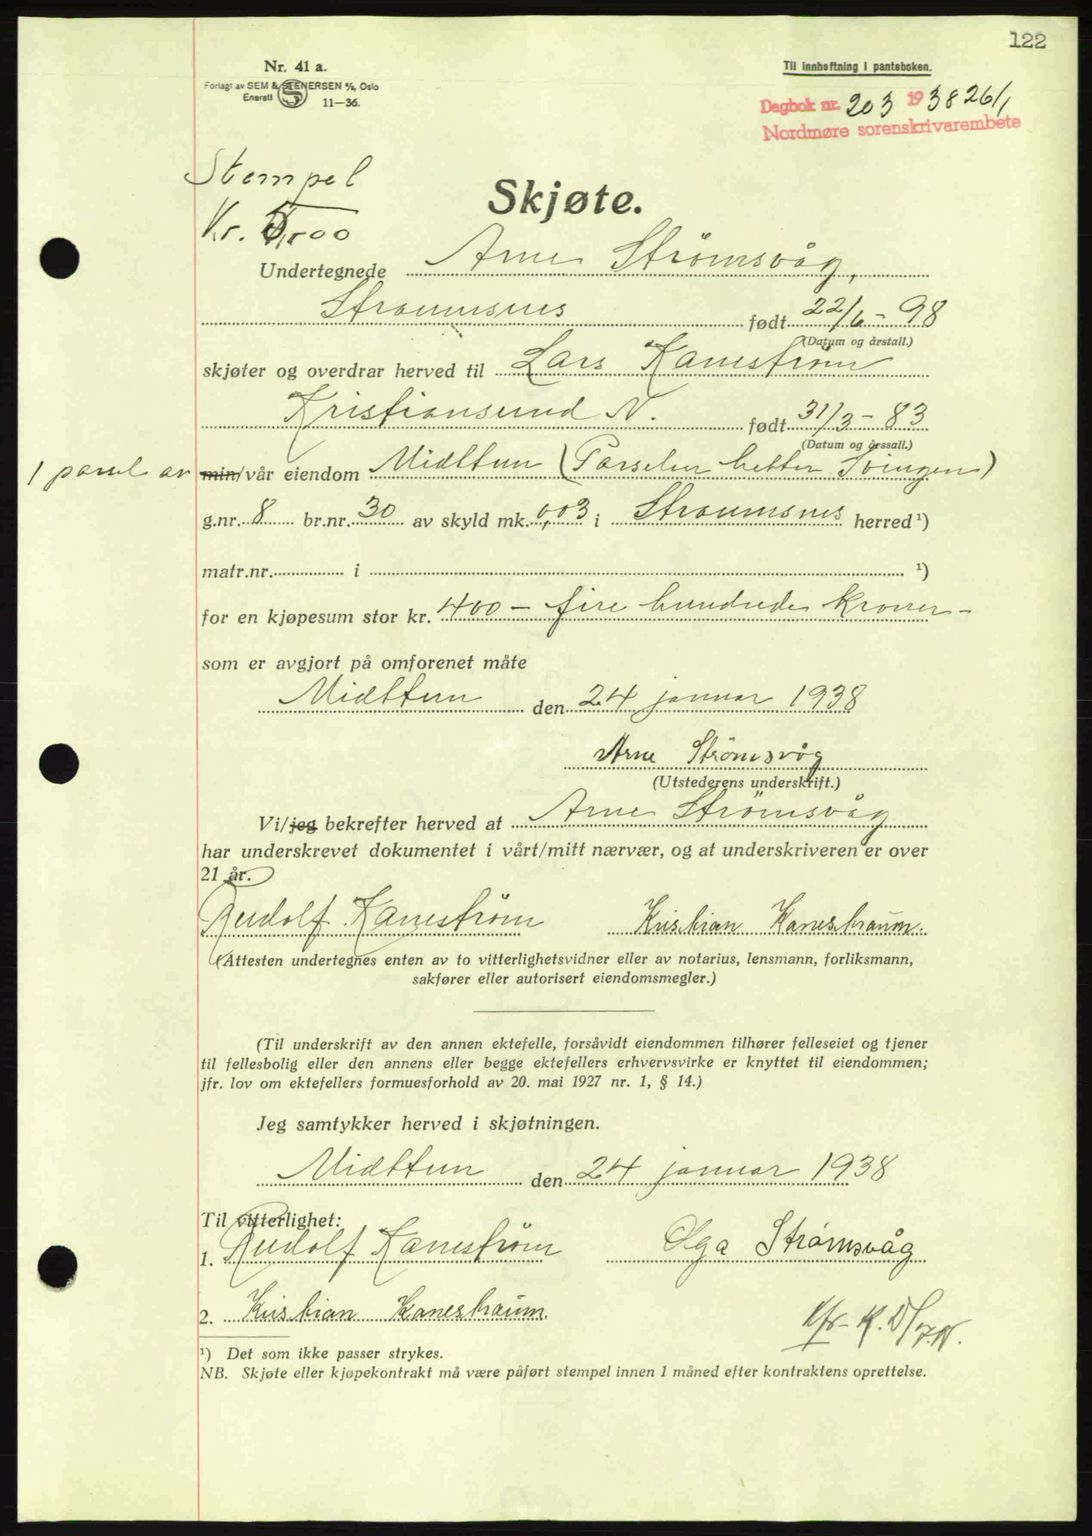 122
Nr. 41 a.
Forlagt av SEM & STENERSEN A/S, Oslo
Enerett 11—36.
Til innheftning i panteboken.
Dagbok nr. 203 1938 26/1
Nordmøre sorenskrivarembete
Stempel
Kr. 00
Skjøte.
Undertegnede Arne Strömsvåg,
Straumsnes født 22/6 - 98
(Datum og årstall.)
skjøter og overdrar herved til Lars Kanestrøm
Kristiansund N. født 31/3 - 83
(Datum og årssall.)
1 parsel av min/vår eiendom Midttun (Parselen hetter Svingen)
g.nr. 8 br.nr. 30 av skyld mk. 0,03 i Straumsnes herred ¹)
matr.nr. i ¹)
for en kjøpesum stor kr. 400 - fire hundrede kroner -
som er avgjort på omforenet måte
Midttun den 24 januar 1938
Arne Strömsvåg
(Utstederens underskrift.)
Vi/jeg bekrefter herved at Arne Strömsvåg
har underskrevet dokumentet i vårt/mitt nærvær, og at underskriveren er over
21 år.
Rudolf Kanestrøm Kristian Kanestraum.
(Attesten undertegnes enten av to vitterlighetsvidner eller av notarius, lensmann, forliksmann,
sakfører eller autorisert eiendomsmegler.)
(Til underskrift av den annen ektefelle, forsåvidt eiendommen tilhører felleseiet og tjener
til fellesbolig eller den annens eller begge ektefellers erhvervsvirke er knyttet til eiendommen;
jfr. lov om ektefellers formuesforhold av 20. mai 1927 nr. 1, § 14.)
Jeg samtykker herved i skjøtningen.
Midttun den 24 januar 1938
Til vitterlighet:
1. Rudolf Kanestrøm Olga Strømsvåg
2. Kristian Kanestraum.
¹) Det som ikke passer strykes.
NB. Skjøte eller kjøpekontrakt må være påført stempel innen 1 måned efter kontraktens oprettelse.